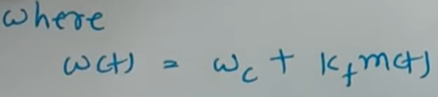 where
ω(t) = ω_c + k_f m(t)